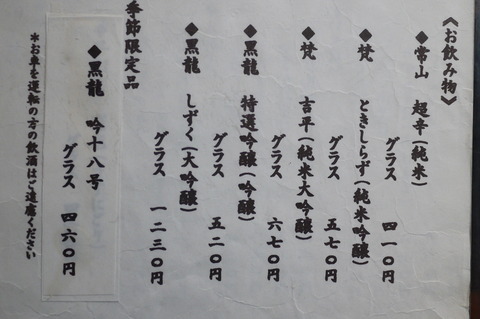 《お飲み物》
◆常山 超辛(純米)
グラス 四一〇円
◆梵 ときしらず(純米吟醸)
グラス 五七〇円
◆梵 吉平(純米大吟醸)
グラス 六七〇円
◆黒龍 特選吟醸(吟醸)
グラス 五二〇円
◆黒龍 しずく(大吟醸)
グラス 一二三〇円
季節限定品
◆黒龍 吟十八号
グラス 四六〇円
*お車を運転の方の飲酒はご遠慮ください